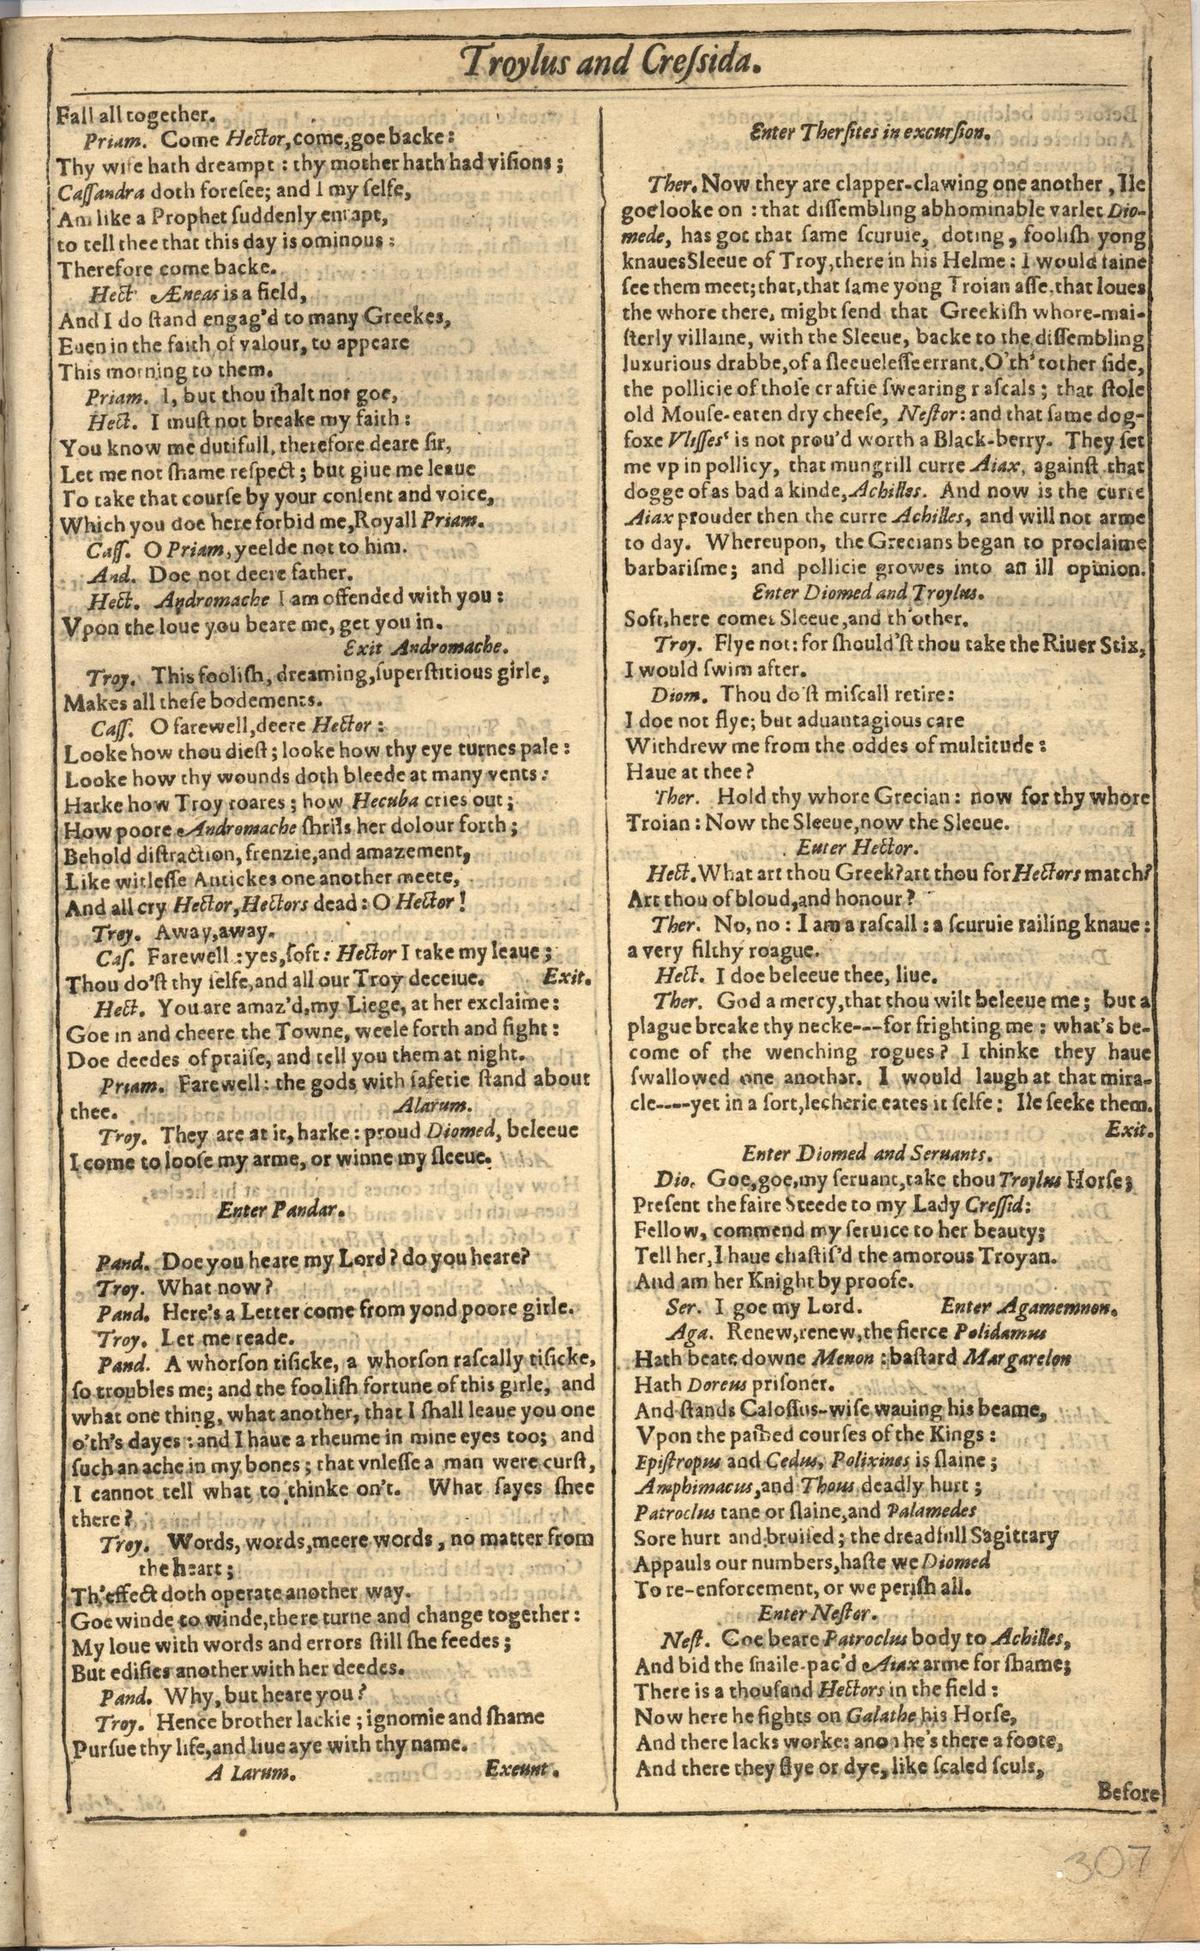 Troylus and Cressida.
Fall all together.
Priam. Come Hector, come, goe backe:
Thy wife hath dreampt: thy mother hath had visions;
Cassandra doth foresee; and I my selfe,
Am like a Prophet suddenly enrapt,
to tell thee that this day is ominous:
Therefore come backe.
Hect Æneas is a field,
And I do stand engag'd to many Greekes,
Euen in the faith of valour, to appeare
This morning to them.
Priam. I, but thou shalt not goe,
Hect. I must not breake my faith:
You know me dutifull, therefore deare sir,
Let me not shame respect; but giue me leaue
To take that course by your consent and voice,
Which you doe here forbid me, Royall Priam.
Cass. O Priam, yeelde not to him.
And. Doe not deere father.
Hect. Andromache I am offended with you:
Vpon the loue you beare me, get you in.
Exit Andromache.
Troy. This foolish, dreaming, superstitious girle,
Makes all these bodements.
Cass. O farewell, deere Hector:
Looke how thou diest; looke how thy eye turnes pale:
Looke how thy wounds doth bleede at many vents:
Harke how Troy roares; how Hecuba cries out;
How poore Andromache shrils her dolour forth;
Behold distraction, frenzie, and amazement,
Like witlesse Antickes one another meete,
And all cry Hector, Hectors dead: O Hector!
Troy. Away, away.
Cas. Farewell: yes, soft: Hector I take my leaue;
Thou do'st thy selfe, and all our Troy deceiue. Exit.
Hect. You are amaz'd, my Liege, at her exclaime:
Goe in and cheere the Towne, weele forth and fight:
Doe deedes of praise, and tell you them at night.
Priam. Farewell: the gods with safetie stand about
thee. Alarum.
Troy. They are at it, harke: proud Diomed, beleeue
I come to loose my arme, or winne my sleeue.
Enter Pandar.
Pand. Doe you heare my Lord? do you heare?
Troy. What now?
Pand. Here's a Letter come from yond poore girle.
Troy. Let me reade.
Pand. A whorson tisicke, a whorson rascally tisicke,
so troubles me; and the foolish fortune of this girle, and
what one thing, what another, that I shall leaue you one
o'th's dayes: and I haue a rheume in mine eyes too; and
such an ache in my bones; that vnlesse a man were curst,
I cannot tell what to thinke on't. What sayes shee
there?
Troy. Words, words, meere words, no matter from
the heart;
Th'effect doth operate another way.
Goe winde to winde, there turne and change together:
My loue with words and errors still she feedes;
But edifies another with her deedes.
Pand. Why, but heare you?
Troy. Hence brother lackie; ignomie and shame
Pursue thy life, and liue aye with thy name.
A Larum. Exeunt.
Enter Thersites in excursion.
Ther. Now they are clapper-clawing one another, Ile
goe looke on: that dissembling abhominable varlet Dio-
mede, has got that same scuruie, doting, foolish yong
knaues Sleeue of Troy, there in his Helme: I would faine
see them meet; that, that same yong Troian asse, that loues
the whore there, might send that Greekish whore-mai-
sterly villaine, with the Sleeue, backe to the dissembling
luxurious drabbe, of a sleeuelesse errant. O'th'tother side,
the pollicie of those craftie swearing rascals; that stole
old Mouse-eaten dry cheese, Nestor: and that same dog-
foxe Vlisses is not prou'd worth a Black-berry. They set
me vp in pollicy, that mungrill curre Aiax, against that
dogge of as bad a kinde, Achilles. And now is the curre
Aiax prouder then the curre Achilles, and will not arme
to day. Whereupon, the Grecians began to proclaime
barbarisme; and pollicie growes into an ill opinion.
Enter Diomed and Troylus.
Soft, here comes Sleeue, and th'other.
Troy. Flye not: for should'st thou take the Riuer Stix,
I would swim after.
Diom. Thou do'st miscall retire:
I doe not flye; but aduantagious care
Withdrew me from the oddes of multitude:
Haue at thee?
Ther. Hold thy whore Grecian: now for thy whore
Troian: Now the Sleeue, now the Sleeue.
Enter Hector.
Hect. What art thou Greek? art thou for Hectors match?
Art thou of bloud, and honour?
Ther. No, no: I am a rascall: a scuruie railing knaue:
a very filthy roague.
Hect. I doe beleeue thee, liue.
Ther. God a mercy, that thou wilt beleeue me; but a
plague breake thy necke---for frighting me: what's be-
come of the wenching rogues? I thinke they haue
swallowed one anothar. I would laugh at that mira-
cle----yet in a sort, lecherie eates it selfe: Ile seeke them.
Exit.
Enter Diomed and Seruants.
Dio. Goe, goe, my seruant, take thou Troylus Horse;
Present the faire Steede to my Lady Cressid:
Fellow, commend my seruice to her beauty;
Tell her, I haue chastis'd the amorous Troyan.
And am her Knight by proofe.
Ser. I goe my Lord. Enter Agamemnon.
Aga. Renew, renew, the fierce Polidamus
Hath beate downe Menon: bastard Margarelon
Hath Doreus prisoner.
And stands Calossus-wise wauing his beame,
Vpon the pashed courses of the Kings:
Epistropus and Cedus, Polixines is slaine;
Amphimacus, and Thous deadly hurt;
Patroclus tane or slaine, and Palamedes
Sore hurt and bruised; the dreadfull Sagittary
Appauls our numbers, haste we Diomed
To re-enforcement, or we perish all.
Enter Nestor.
Nest. Coe beare Patroclus body to Achilles,
And bid the snaile-pac'd Aiax arme for shame;
There is a thousand Hectors in the field:
Now here he fights on Galathe his Horse,
And there lacks worke: anon he's there a foote,
And there they flye or dye, like scaled sculs,
Before
307